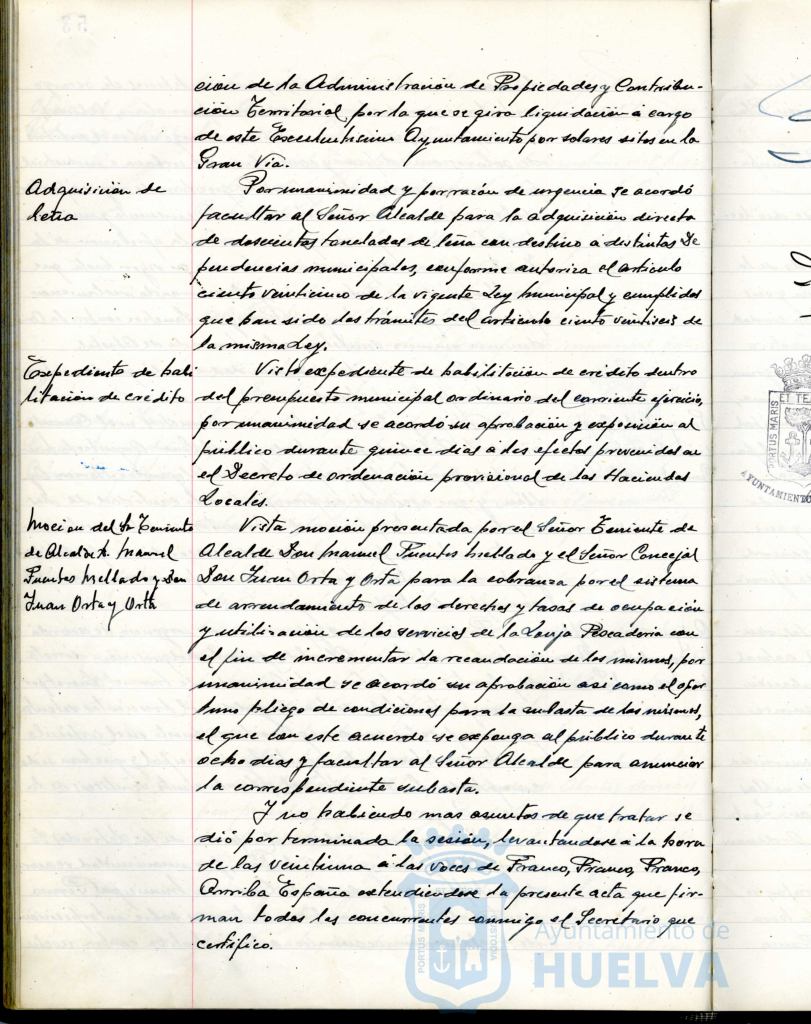 ción de la Administración de Propiedades y Contribu-
ción Territorial por la que se gira liquidación a cargo
de este Excelentísimo Ayuntamiento por solares sitos en la
Gran Vía.
Adquisición de
leña
Por unanimidad y por razón de urgencia se acordó
facultar al Señor Alcalde para la adquisición directa
de doscientas toneladas de leña con destino a distintas De
pendencias municipales, conforme autoriza el artículo
ciento veinticinco de la vigente Ley Municipal y cumplidos
que han sido los trámites del artículo ciento veintiseis de
la misma Ley.
Expediente de habi
litación de crédito
Visto expediente de habilitación de crédito dentro
del presupuesto municipal ordinario del corriente ejercicio,
por unanimidad se acordó su aprobación y exposición al
público durante quince días a los efectos prevenidos en
el Decreto de ordenación provisional de las Haciendas
Locales.
Moción del Sr Teniente
de Alcalde D. Manuel
Fuentes Mellado y Don
Juan Orta y Orta
Vista moción presentada por el Señor Teniente de
Alcalde Don Manuel Fuentes Mellado y el Señor Concejal
Don Juan Orta y Orta para la cobranza por el sistema
de arrendamiento de los derechos y tasas de ocupación
y utilización de los servicios de la Lonja Pescadería con
el fin de incrementar la recaudación de los mismos, por
unanimidad se acordó su aprobación asi como el opor
tuno pliego de condiciones para la subasta de los mismos,
el que con este acuerdo se exponga al público durante
ocho días y facultar al Señor Alcalde para anunciar
la correspondiente subasta.
Y no habiendo mas asuntos de que tratar se
dió por terminada la sesión, levantandose a la hora
de las veintiuna a las voces de Franco, Franco, Franco,
Arriba España extendiendose la presente acta que fir-
man todos los concurrentes conmigo el Secretario que
certifico.
PORTUS MARIS
ET TE
AYUNTAMIENTO
Ayuntamiento de
HUELVA